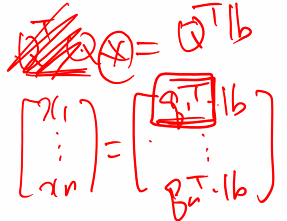 Q^T Q x = Q^T b
[x_1 ⋮ x_n] = [q_1^T · b ⋮ q_n^T · b]